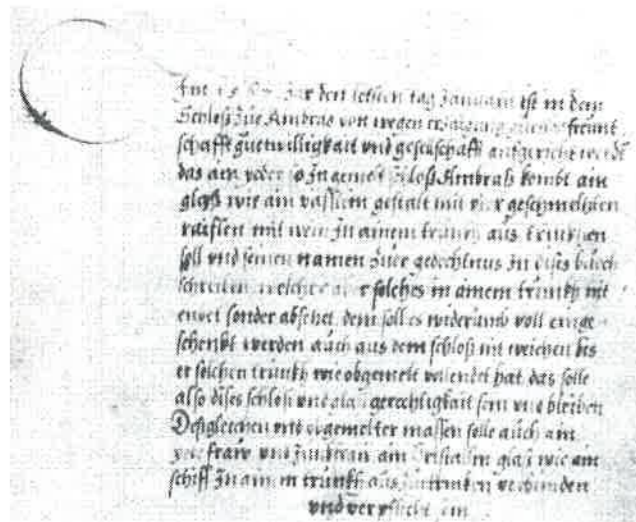 Im 15 7 Jar den letsten tag Januarii ist in dem
Schloß Zue Ambras von wegen erzaigung freunt
schafft guetwilligkait vnd geselschafft aufgericht
das ain yeder so In gemelt Schloß Ambraß kombt ain
glaß wie ain vässlein gestalt mit geschmeltzten
raifflen mit wein In ainem trunkh aus trinkhen
soll vnd seinen namen Zuer gedechtnus In dises buech
schreiben welcher aber solches in ainem trunkh nit
endet sonder absetzet dem soll es widerumb voll einge
schenkt werden auch aus dem schloß nit weichen bis
er solchen trunkh wie obgemelt volendet hat das solle
also dises schloß vnd glaß gerechtigkait sein vnd bleiben
Desgleichen vnd obgemelter massen solle auch ain
yede fraw vnd Junkfraw ain Cristallin glaß wie ain
schiff In ainem trunkh aus Zutrinken verbunden
vnd verpflicht sein